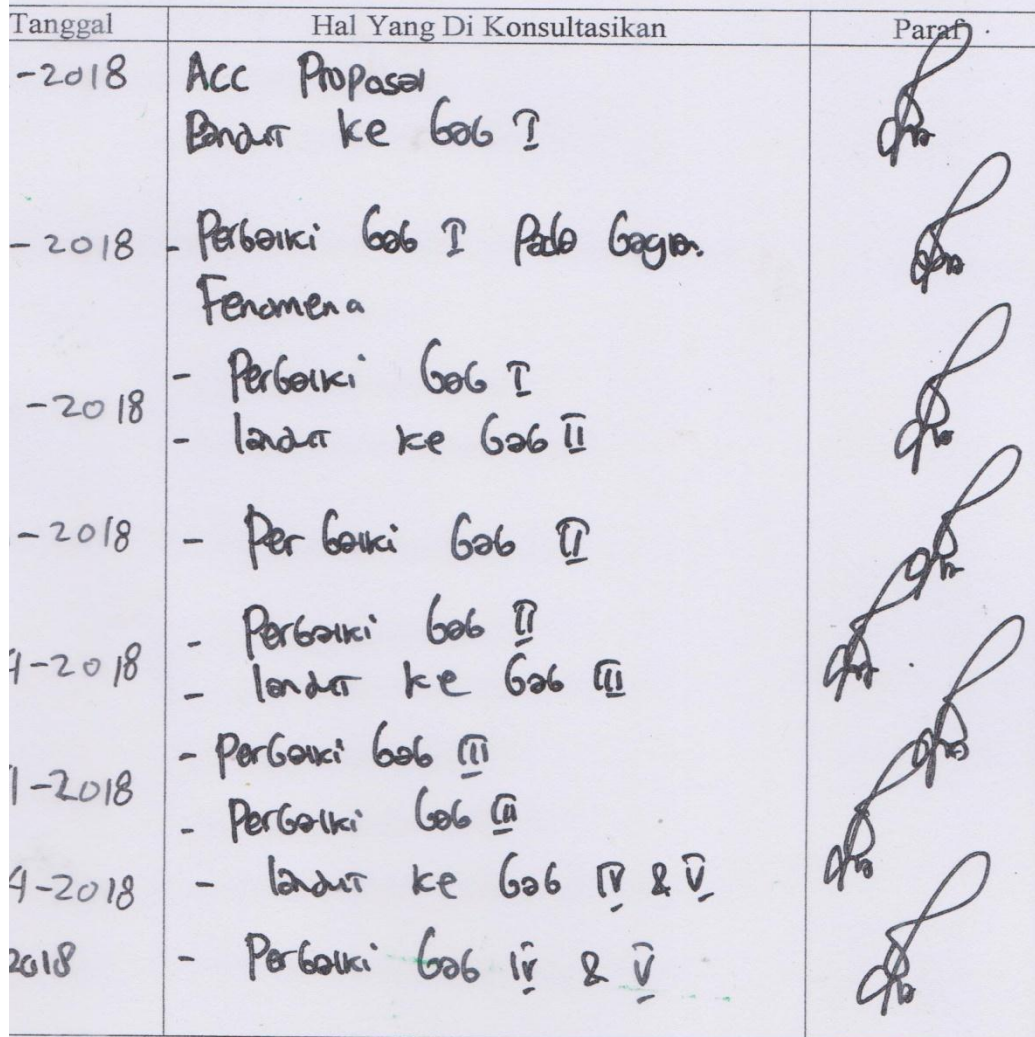 Tanggal Hal Yang Di Konsultasikan Paraf
-2018 Acc Proposal
Lanjut ke bab I
- 2018 - Perbaiki bab I Pada bagian
Fenomena
- Perbaiki bab I
-2018
- lanjut ke bab II
-2018 - Perbaiki bab II
- Perbaiki bab II
4-2018
- lanjut ke bab III
- Perbaiki bab III
-2018
- Perbaiki bab III
4-2018 - lanjut ke bab IV & V
2018 - Perbaiki bab IV & V